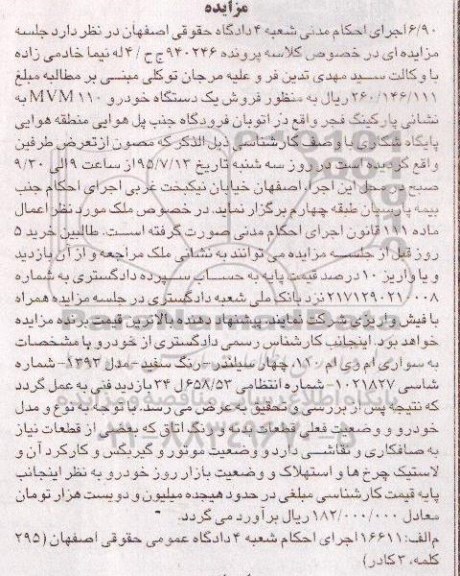 مزایده
۶/۹۰ اجرای احکام مدنی شعبه ۴ دادگاه حقوقی اصفهان در نظر دارد جلسه
مزایده ای در خصوص کلاسه پرونده ۹۴۰۲۴۶ ج ح / ۴ له نیما خادمی زاده
با وکالت سید مهدی تدین فر و علیه مرجان توکلی مبنی بر مطالبه مبلغ
۲۶۰/۱۴۶/۱۱۱ ریال به منظور فروش یک دستگاه خودرو MVM ۱۱۰ به
نشانی پارکینگ فجر واقع در اتوبان فرودگاه جنب پل هوایی منطقه هوایی
پایگاه شکاری با وصف کارشناسی ذیل الذکر که مصون از تعرض طرفین
واقع گردیده است در روز سه شنبه تاریخ ۹۵/۷/۱۳ از ساعت ۹ الی ۹/۳۰
صبح در محل این اجرا، اصفهان خیابان نیکبخت غربی اجرای احکام جنب
بیمه پارسیان طبقه چهارم برگزار نماید. در خصوص ملک مورد نظر اعمال
ماده ۱۱۱ قانون اجرای احکام مدنی صورت گرفته است. طالبین خرید ۵
روز قبل از جلسه مزایده می توانند به نشانی ملک مراجعه و از آن بازدید
و با واریز ۱۰ درصد قیمت پایه به حساب سپرده دادگستری به شماره
۲۱۷۱۲۹۰۲۱۰۰۰۸ نزد بانک ملی شعبه دادگستری در جلسه مزایده همراه
با فیش واریزی شرکت نمایند. پیشنهاد دهنده بالاترین قیمت برنده مزایده
خواهد بود. اینجانب کارشناس رسمی دادگستری از خودرو با مشخصات
به سواری ام وی ام ۱۱۰، چهار سیلندر - رنگ سفید - مدل ۱۳۹۳ - شماره
شاسی ۱۰۲۱۸۲۷ - شماره انتظامی ۶۵۸/۵۳ ل ۲۴ بازدید فنی به عمل گردد
که نتیجه پس از بررسی و تحقیق به عرض می رسد. با توجه به نوع و مدل
خودرو و وضعیت فعلی قطعات بدنه و رنگ اتاق که بعضی از قطعات نیاز
به صافکاری و نقاشی دارد و وضعیت موتور و گیربکس و کارکرد آن و
لاستیک چرخ ها و استهلاک و وضعیت بازار روز خودرو به نظر اینجانب
پایه قیمت کارشناسی مبلغی در حدود هیجده میلیون و دویست هزار تومان
معادل ۱۸۲/۰۰۰/۰۰۰ ریال برآورد می گردد.
م الف: ۱۶۶۱۱ اجرای احکام شعبه ۴ دادگاه عمومی حقوقی اصفهان (۲۹۵
کلمه، ۳ کادر)